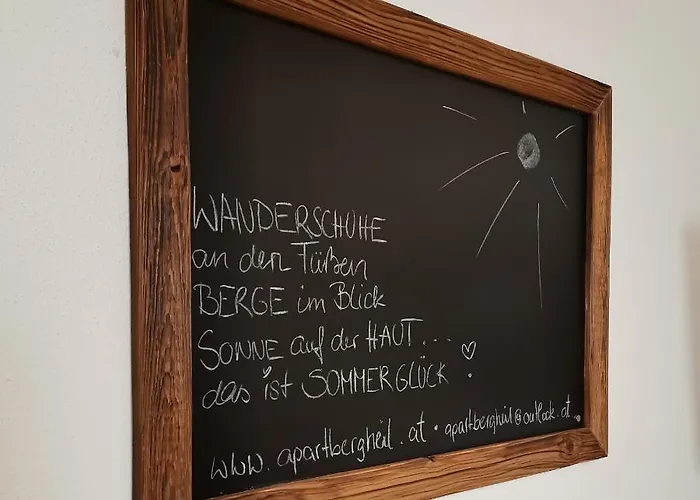 WANDERSCHUHE
an den Füßen
BERGE im Blick
SONNE auf der HAUT...
das ist SOMMERGLÜCK.
www.apartbergheil.at • apartbergheil@outlook.at